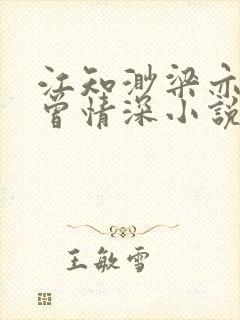 江知渺梁亦
曾情深小説
王敏雪